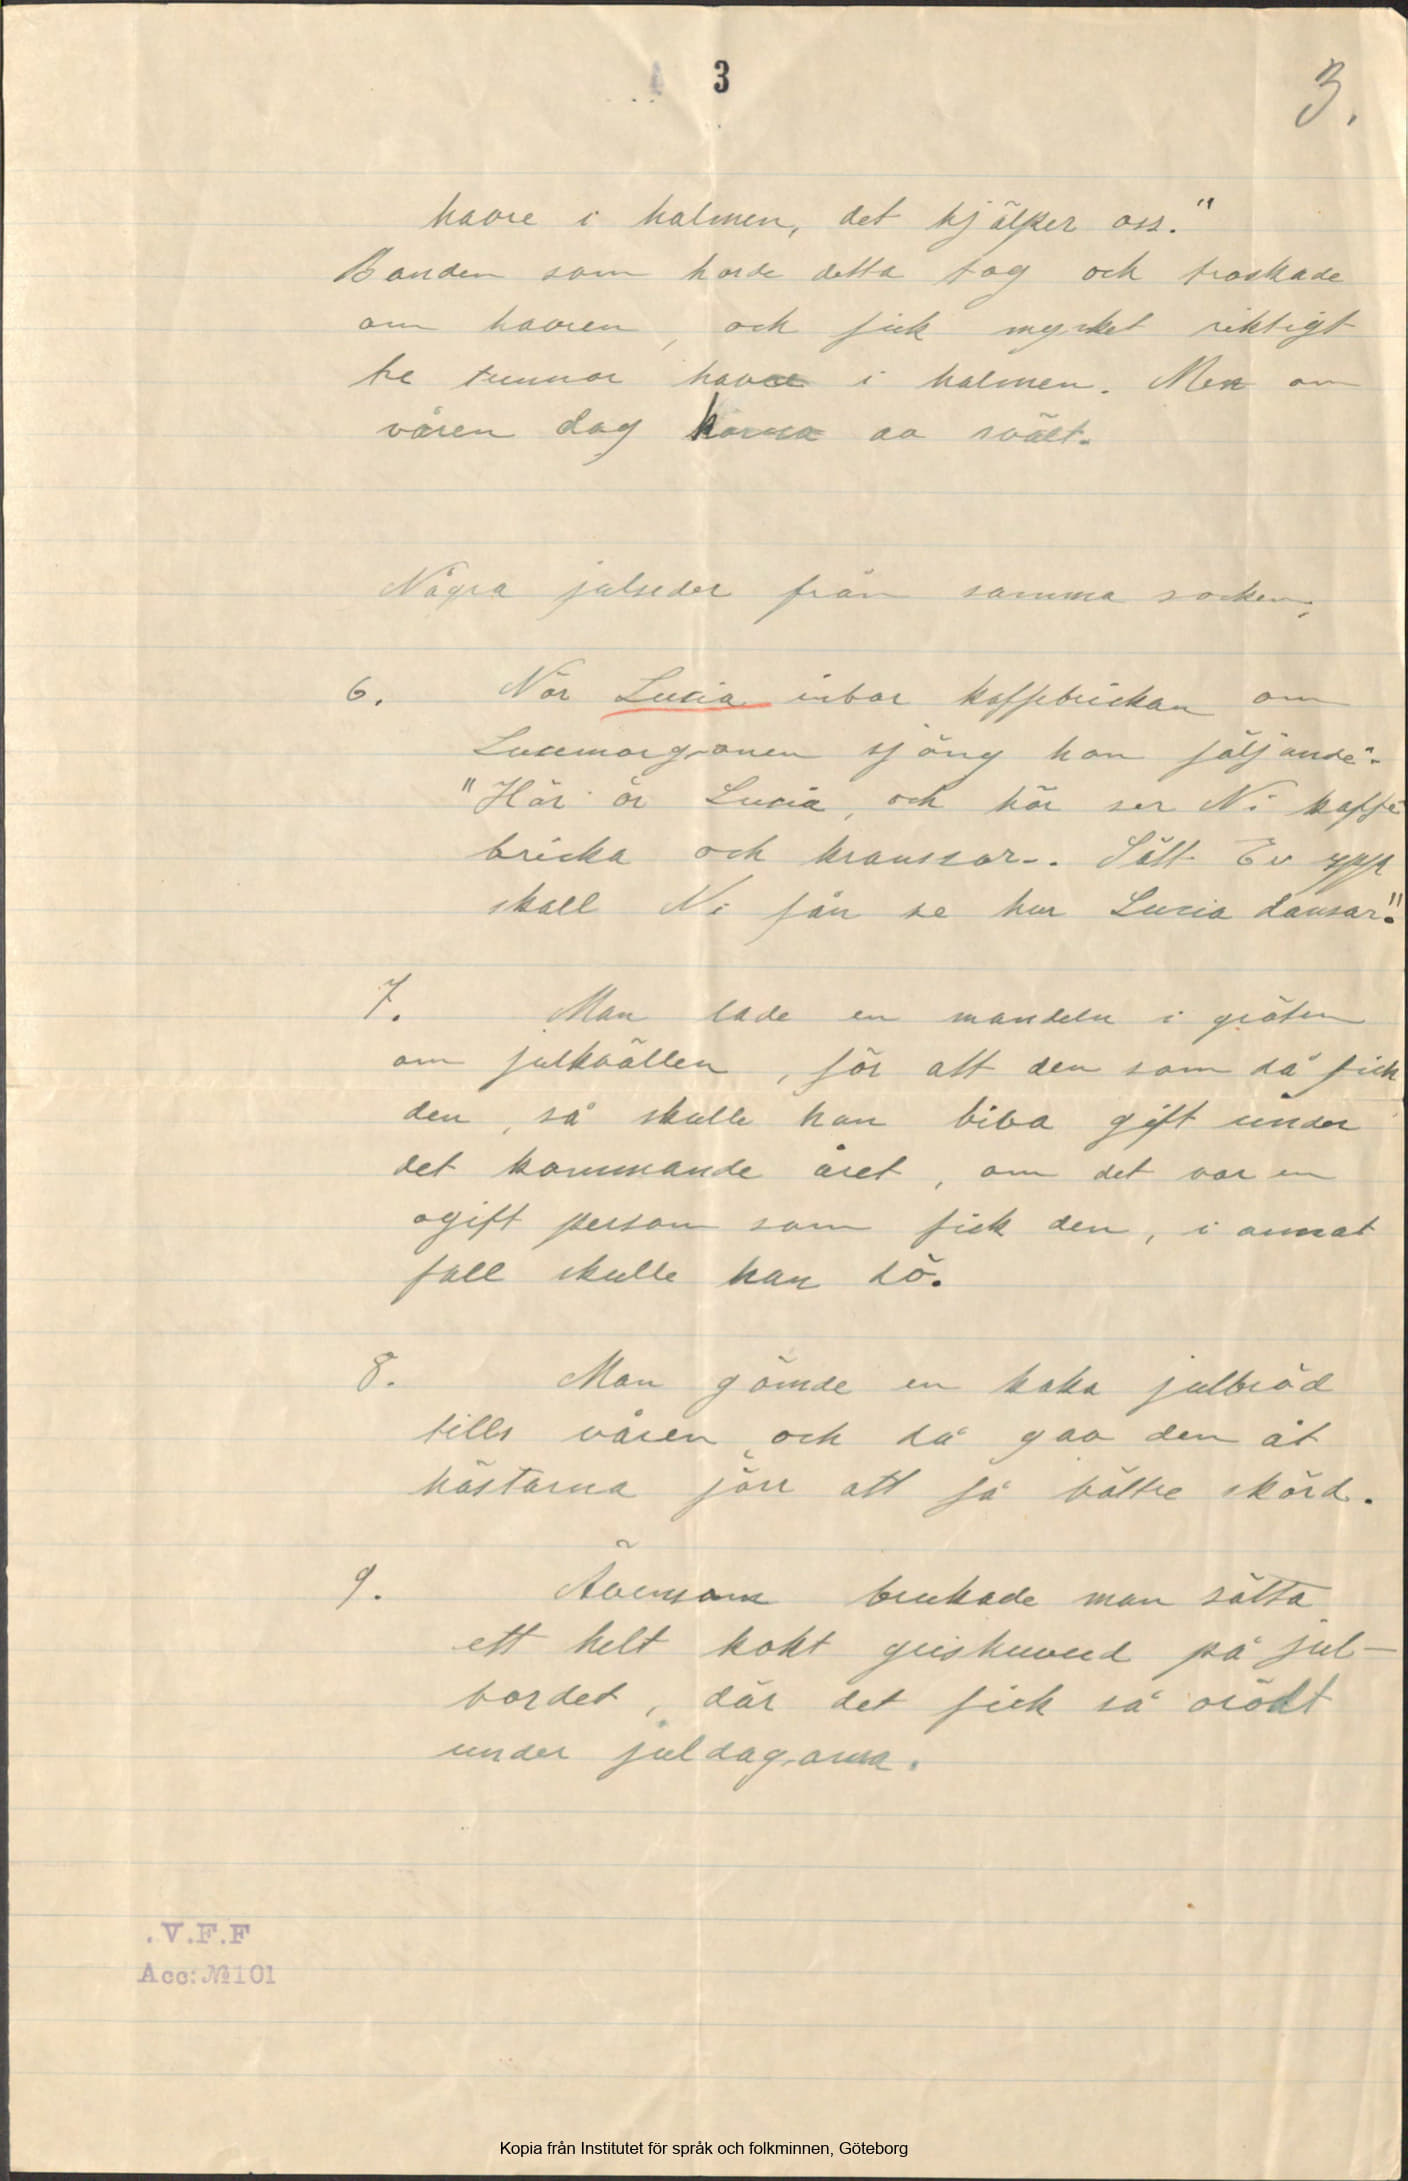 3
3.
havre i halmen, det hjälper oss."
Bonden som horde detta tog och troskade
om havren, och fick mycket riktigt
tre tunnor havre i halmen. Men om
våren dog korna av svält.
Några julseder från samma socken.
6. När Lucia inbar kaffebrickan om
Lucemorgonen sjöng hon följande".
"Här är Lucia, och här ser Ni kaffe
bricka och kranssar-. Sätt Er upp
skall Ni får se hur Lucia dansar."
7. Man lade en mandeln i gröten
om julkvällen, för att den som då fick
den, så skulle han bliva gift under
det kommande året, om det var en
ogift person som fick den, i annat
fall skulle han dö.
8. Man gömde en kaka julbröd
tills våren och då gav den åt
hästarna förr att få bättre skörd.
9. Ävensom brukade man sätta
ett helt kokt grishuvud på jul-
bordet, där det fick stå orört
under juldagarna.
.V.F.F
Acc:№101
Kopia från Institutet för språk och folkminnen, Göteborg